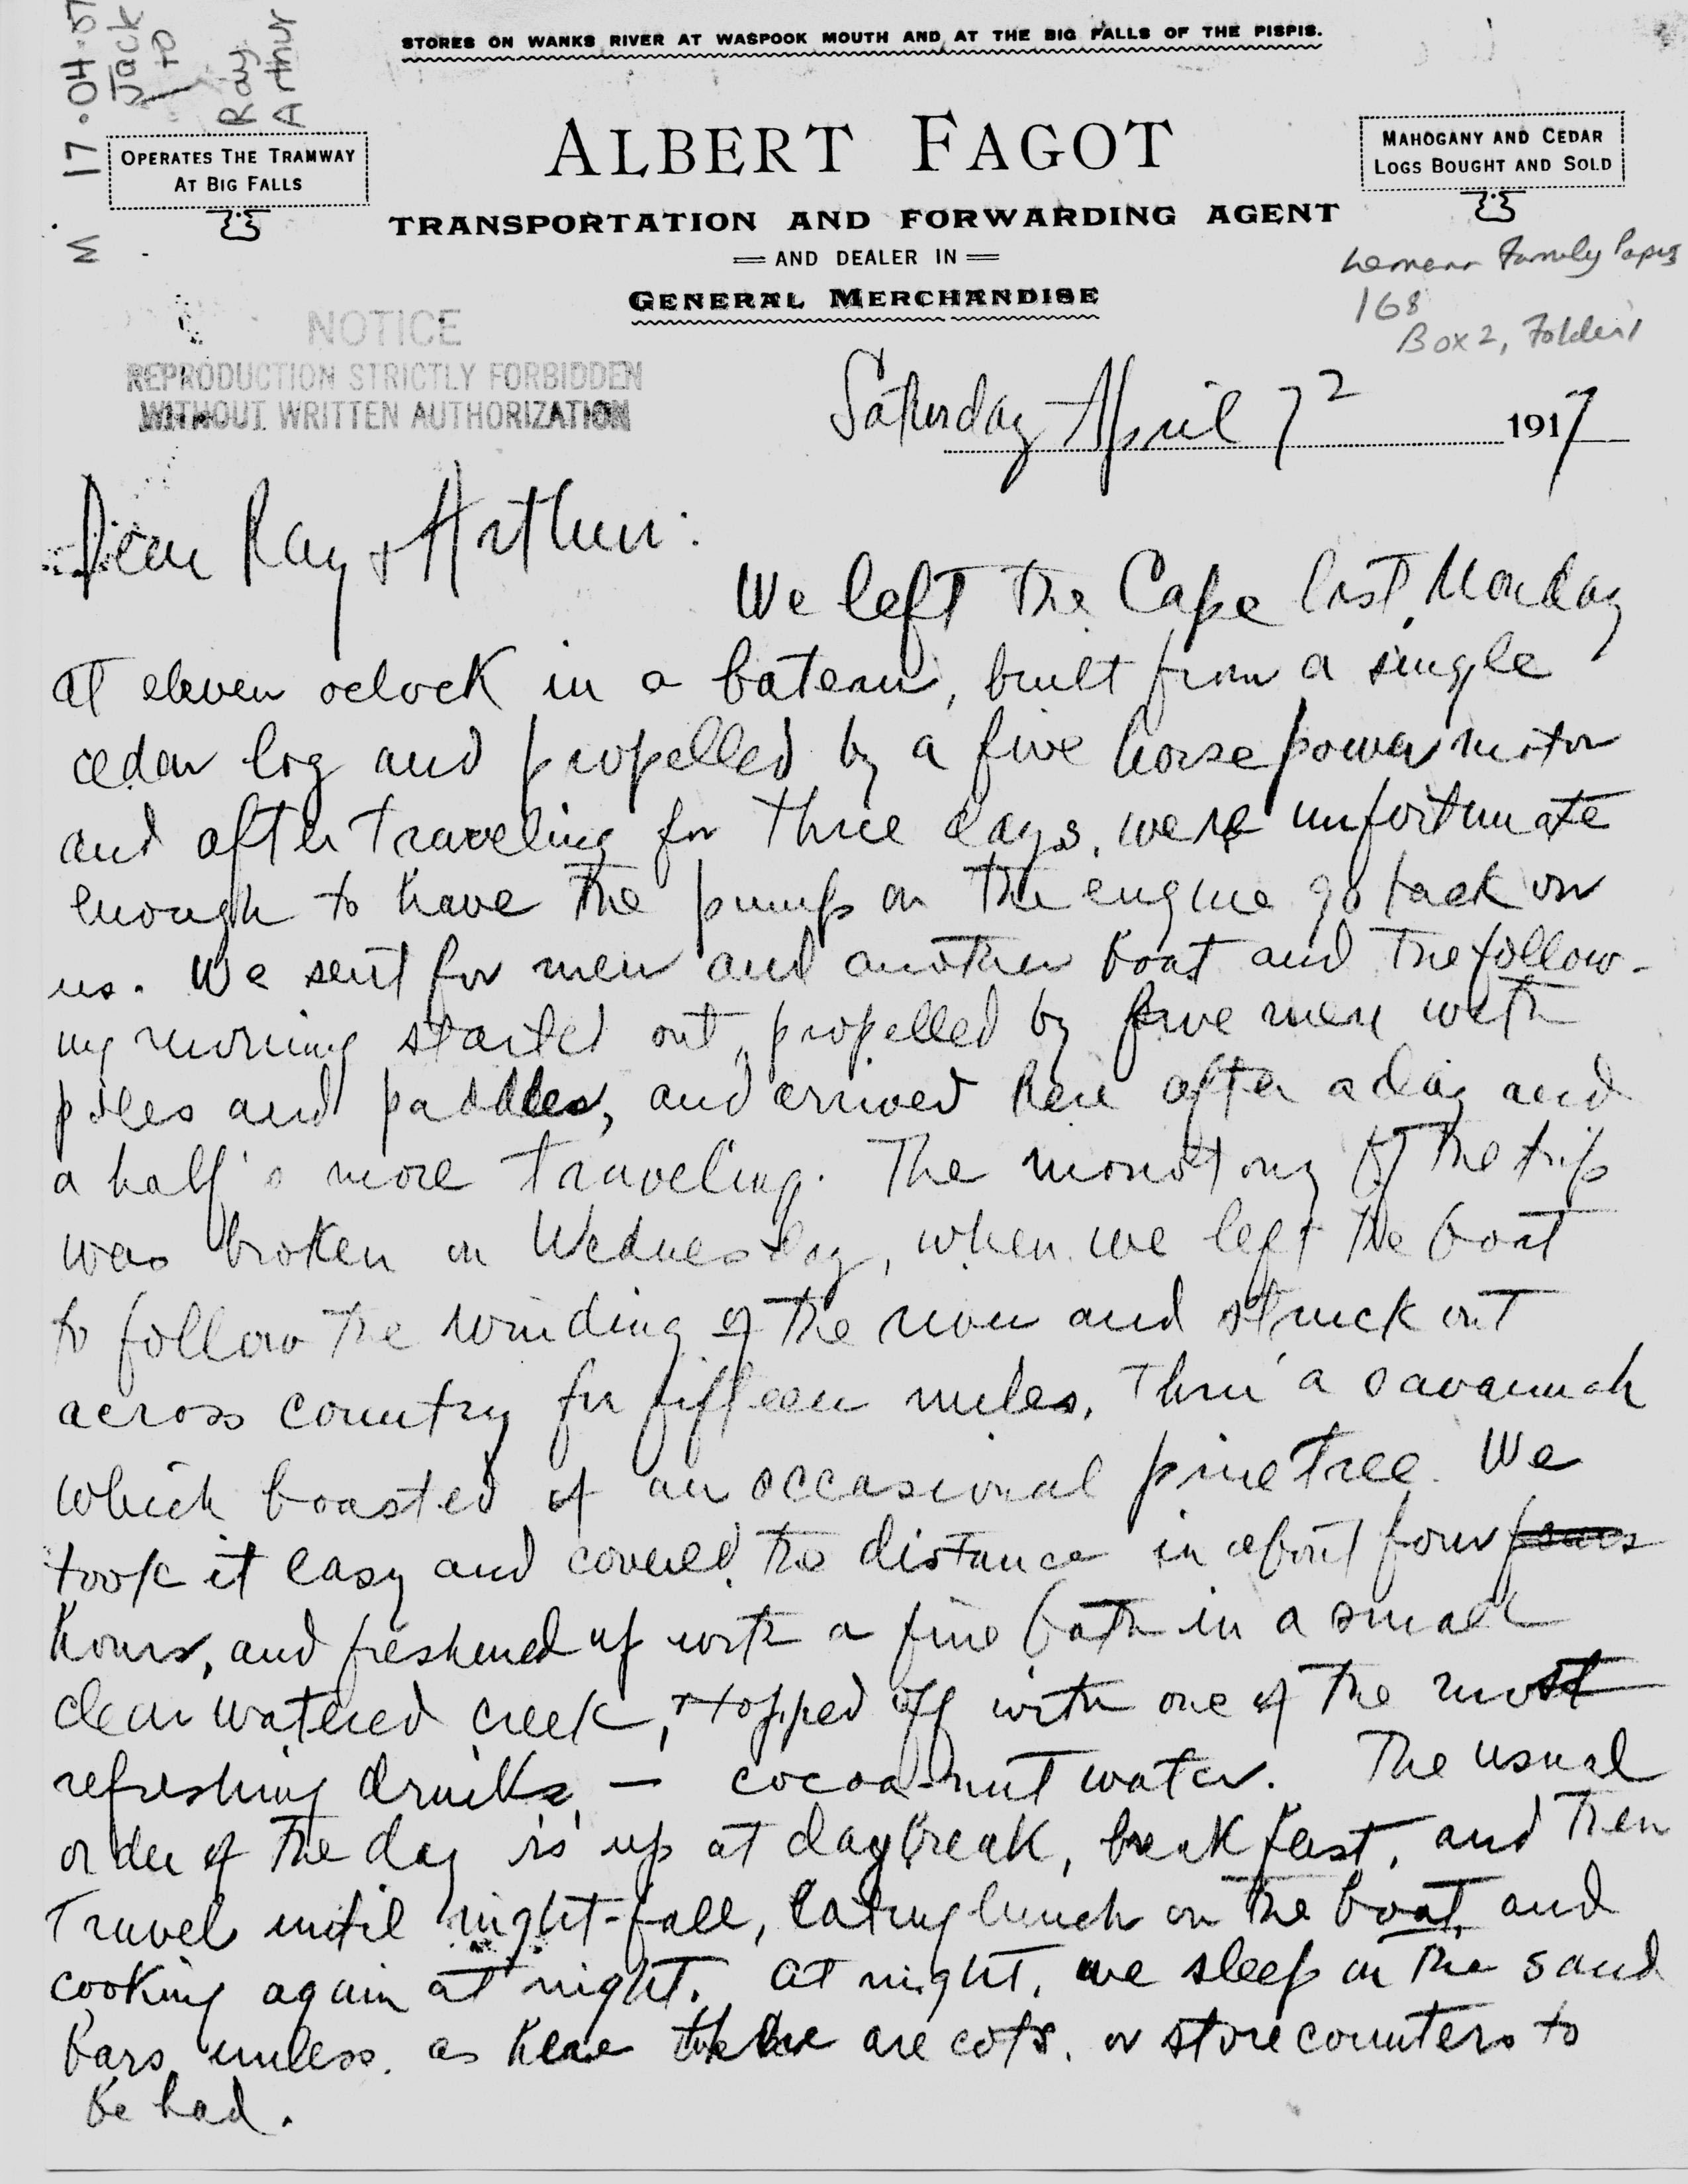 M 17.04.07
Jack
to
Ray
Arthur
STORES ON WANKS RIVER AT WASPOOK MOUTH AND AT THE BIG FALLS OF THE PISPIS.
OPERATES THE TRAMWAY
AT BIG FALLS
ALBERT FAGOT
MAHOGANY AND CEDAR
LOGS BOUGHT AND SOLD
TRANSPORTATION AND FORWARDING AGENT
AND DEALER IN
GENERAL MERCHANDISE
Lemann Family Papers
168
Box 2, Folder 1
NOTICE
REPRODUCTION STRICTLY FORBIDDEN
WITHOUT WRITTEN AUTHORIZATION
Saturday April 7 1917
Dear Ray & Arthur:
We left the Cape last Monday
at eleven oclock in a bateau, built from a single
cedar log and propelled by a five horse power motor
and after traveling for three days, were unfortunate
enough to have the pump on the engine go back on
us. We sent for men and another boat and the follow-
ing morning started out, propelled by five men with
poles and paddles, and arrived here after a day and
a half's more traveling. The monotony of the trip
was broken on Wednesday, when we left the boat
to follow the winding of the river and struck out
across country for fifteen miles, thru a savannah
which boasted of an occasional pine tree. We
took it easy and covered the distance in about four
hours, and freshened up with a fine bath in a small
clear watered creek, & topped off with one of the most
refreshing drinks, — cocoa-nut water. The usual
order of the day is up at daybreak, breakfast, and then
travel until night-fall, eating lunch on the boat, and
cooking again at night. At night, we sleep on the sand
bars, unless, as here there are cots, or store counters to
be had.